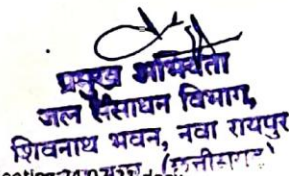 प्रमुख अभियंता
जल संसाधन विभाग,
शिवनाथ भवन, नवा रायपुर
(छत्तीसगढ़)